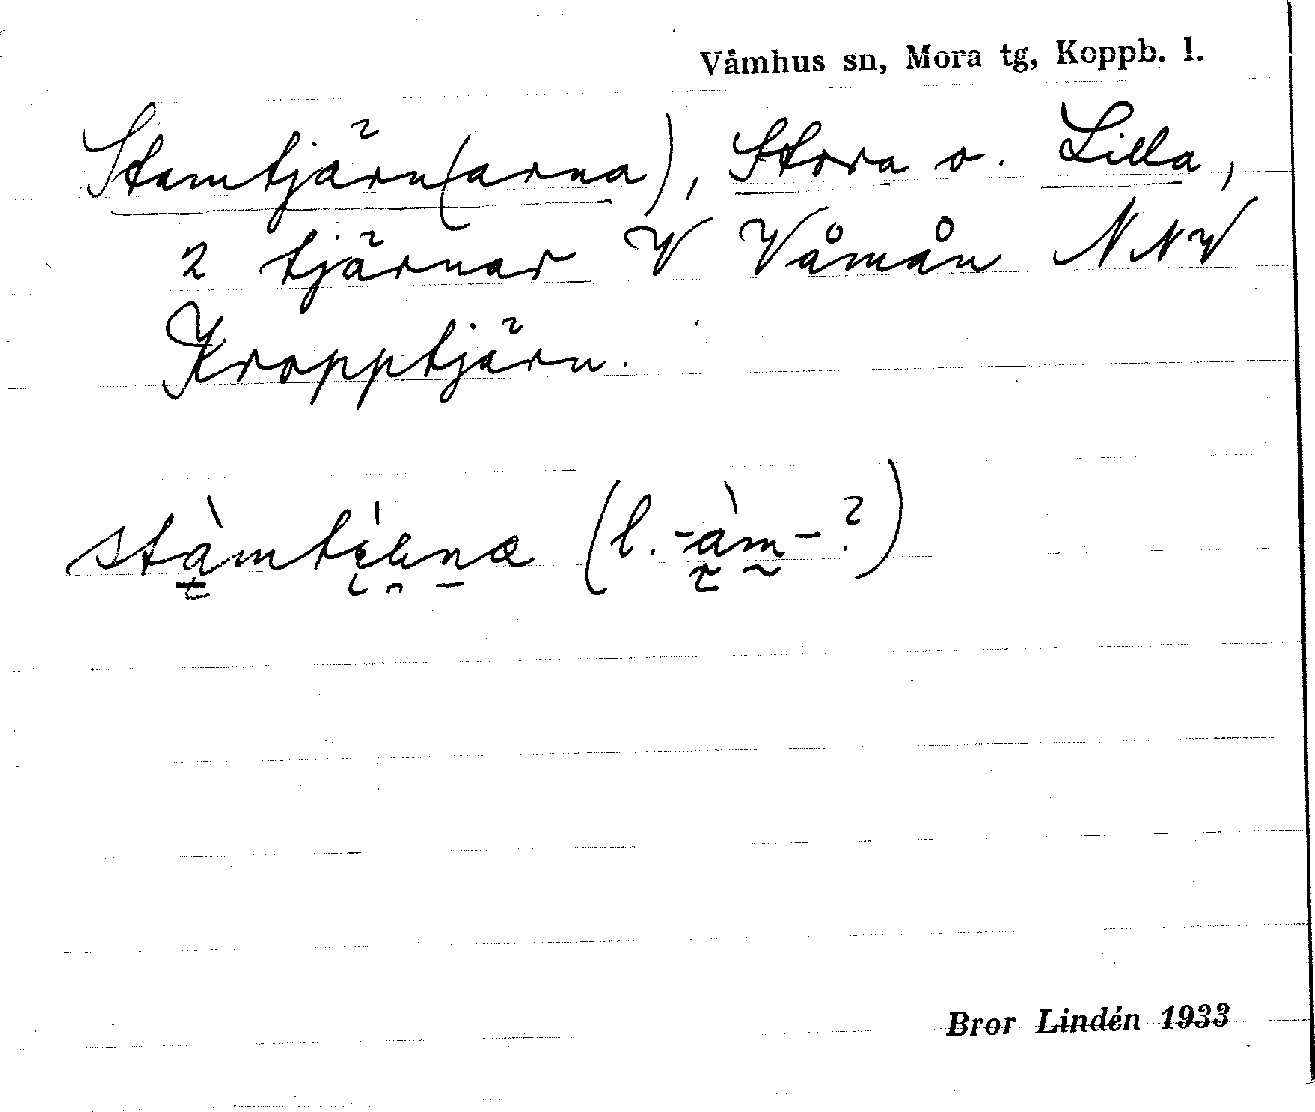 Våmhus sn, Mora tg, Koppb. l.
Stamtjärn(arna), Stora o. Lilla,
2 tjärnar V Våmån NNV
Kropptjärn.
(l. -àm-?)
Bror Lindén 1933